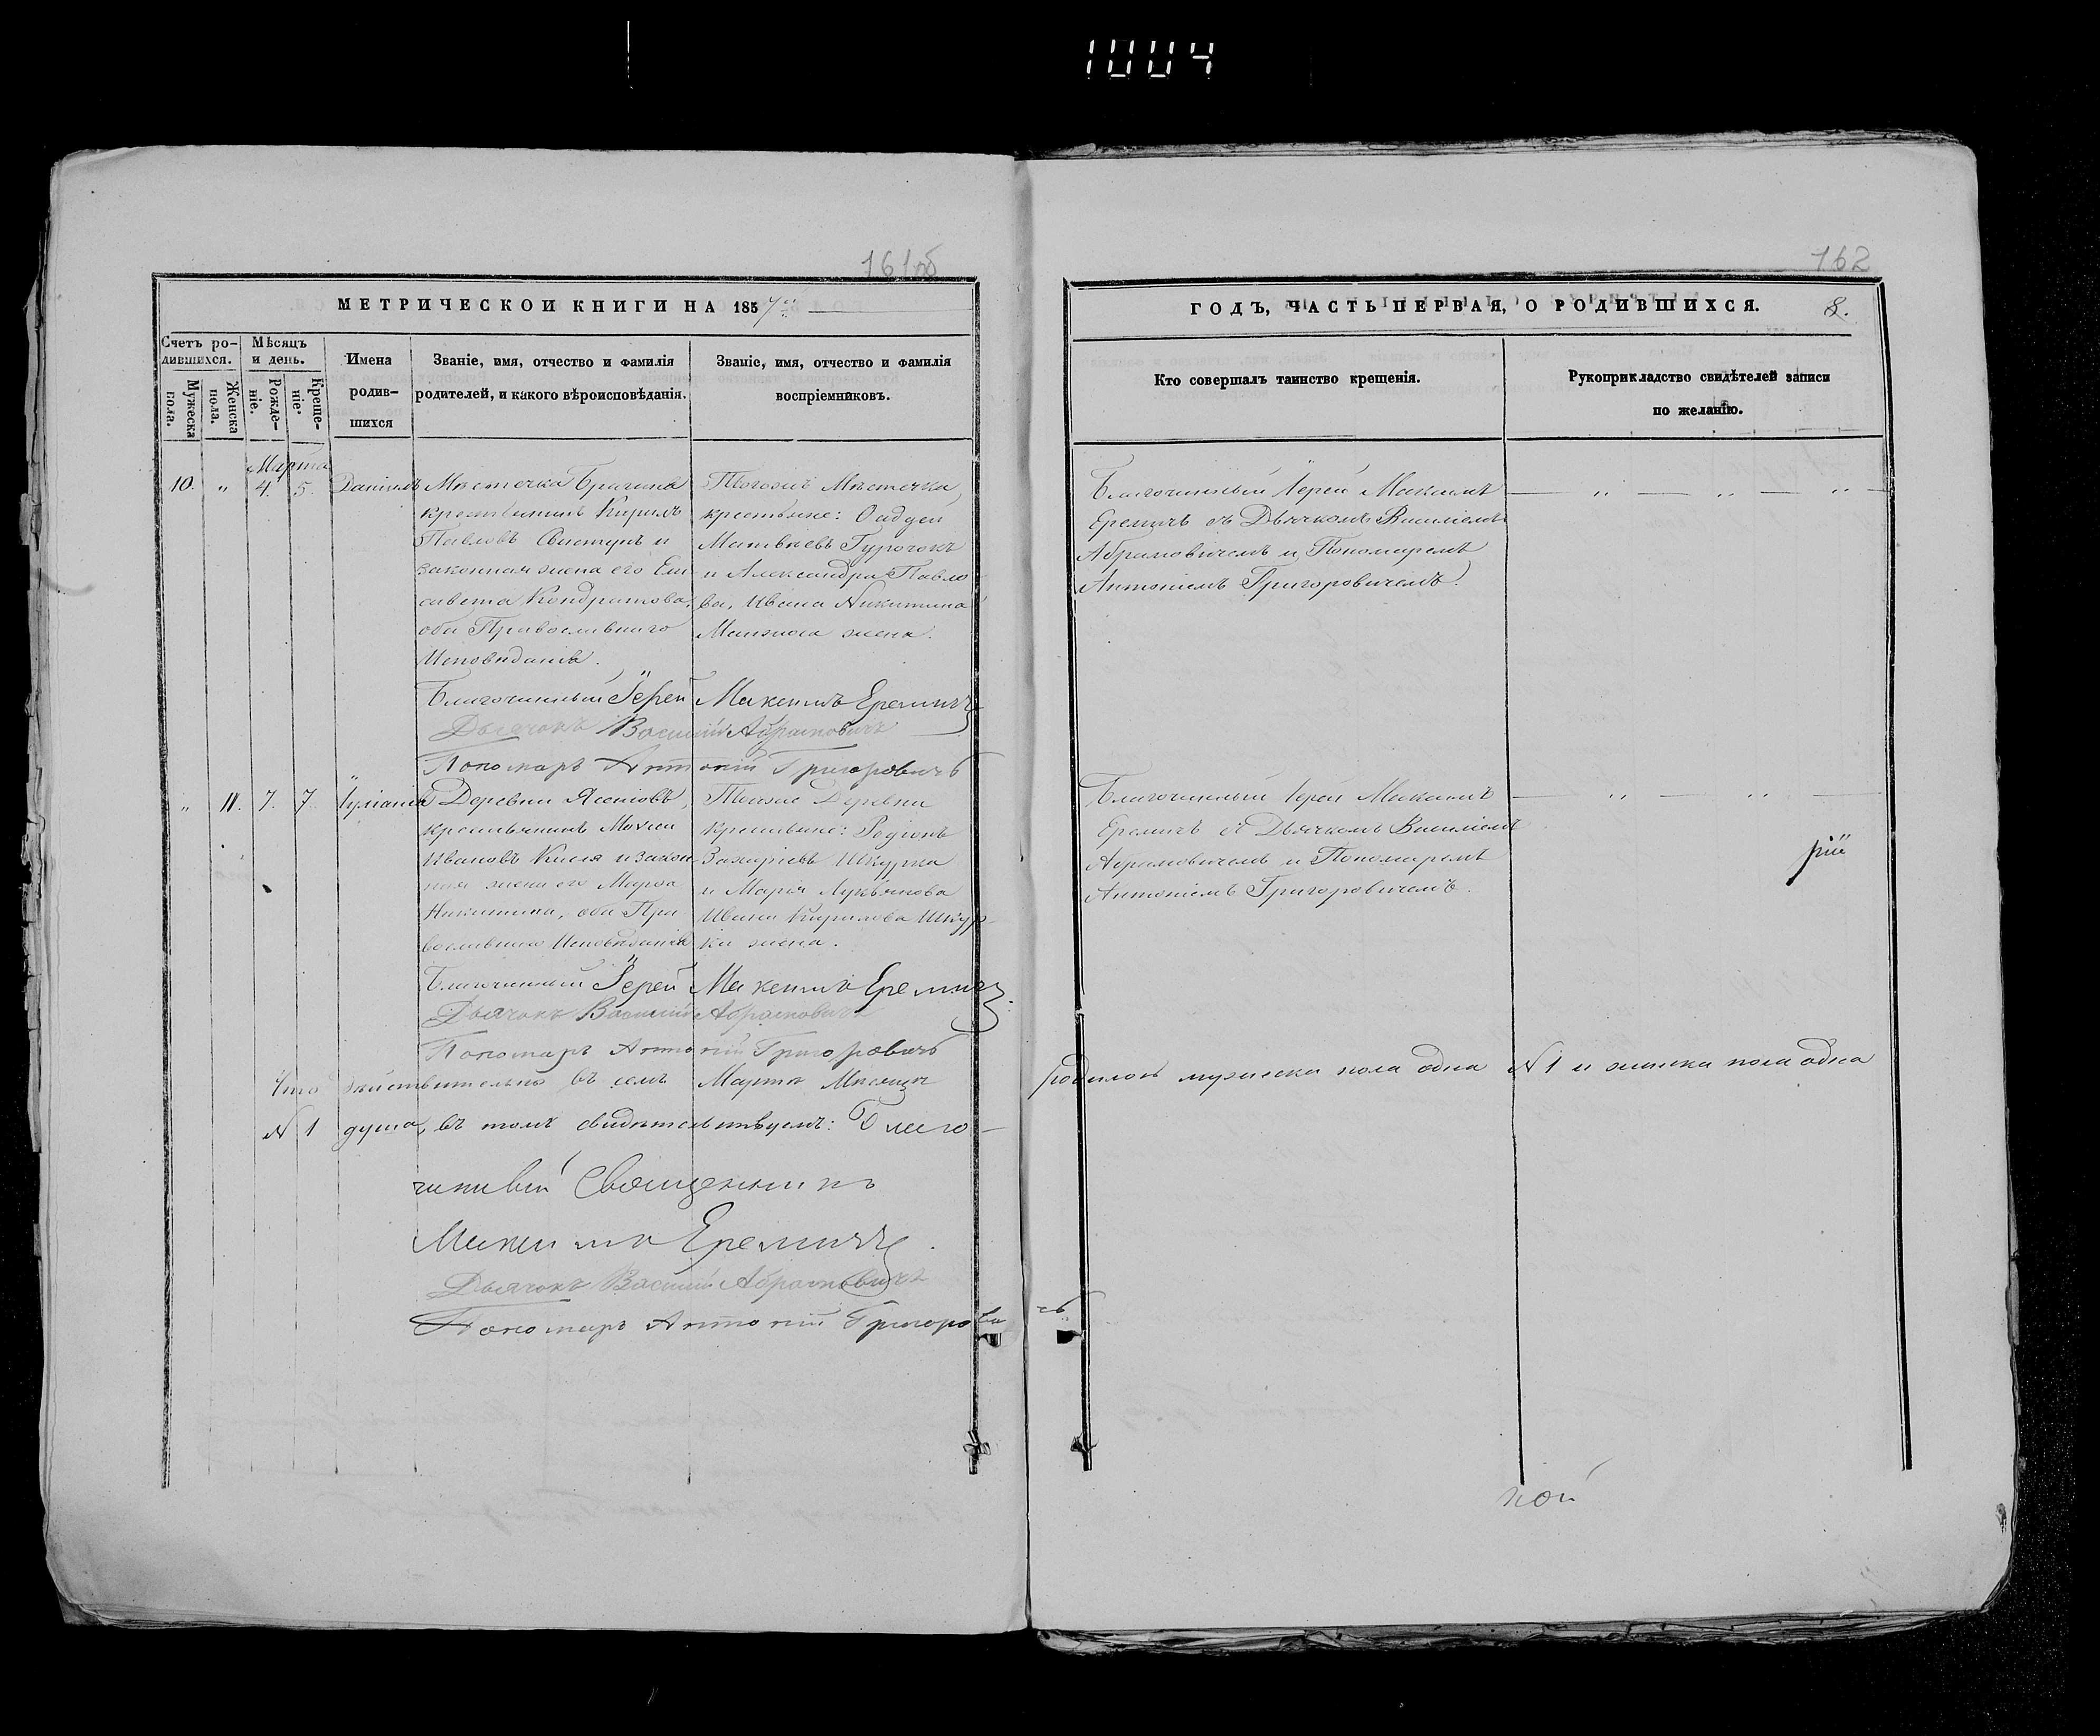 1004
161об
162
МЕТРИЧЕСКОЙ КНИГИ НА 1857й
ГОДЪ, ЧАСТЬ ПЕРВАЯ, О РОДИВШИХСЯ.
8.
Счетъ ро-
дившихся.
Мужеска
пола.
Женска
пола.
Мѣсяцъ
и день.
Рожде-
ніе.
Креще-
ніе.
Имена
родив-
шихся
Званіе, имя, отчество и фамилія
родителей, и какого вѣроисповѣданія.
Званіе, имя, отчество и фамилія
воспріемниковъ.
Кто совершалъ таинство крещенія.
Рукоприкладство свидѣтелей записи
по желанію.
Марта
10. " 4. 5. Даніилъ
Мѣстечка Брагина
крестьянинъ Кирилъ
Павловъ Свистунъ и
законная жена его Ели-
савета Кондратова,
оба Православнаго
Исповѣданія.
Тогожъ Мѣстечка
крестьяне:
Матвѣевъ
и Александра Павло
ва, Ивана Никитина
жена.
Благочинный Іерей Максимъ
Еремичъ съ Дьячкомъ Василіемъ
Абрамовичемъ и Пономаремъ
Антоніемъ Григоровичемъ.
Благочинный Іерей Максимъ Еремичъ
Дьячокъ Василій Абрамовичъ
Пономарь Антоній Григоровичъ
" 11. 7. 7. Іуліанія
Деревни Ясеновъ,
крестьянинъ Моисей
Ивановъ Кисля и закон
ная жена его Марѳа
Никитина, оба Пра
вославнаго Исповѣданія
Тойже Деревни
крестьяне: Родіонъ
Захаріевъ Шкурка
и Марія Лукьянова
Ивана Кирилова Шкур-
ки жена.
Благочинный Іерей Максимъ
Еремичъ съ Дьячкомъ Василіемъ
Абрамовичемъ и Пономаремъ
Антоніемъ Григоровичемъ.
рій
Благочинный Іерей Максимъ Еремичъ
Дьячокъ Василій Абрамовичъ
Пономарь Антоній Григоровичъ
Что дѣйствительно въ семъ Мартѣ Мѣсяцѣ родилось мужеска пола одна N 1 и женска пола одна
N 1 душа, въ томъ свидѣтельствуемъ: Благо-
чинный Священникъ
Максимъ Еремичъ.
Дьячокъ Василій Абрамовичъ
Пономарь Антоній Григоровичъ
кой